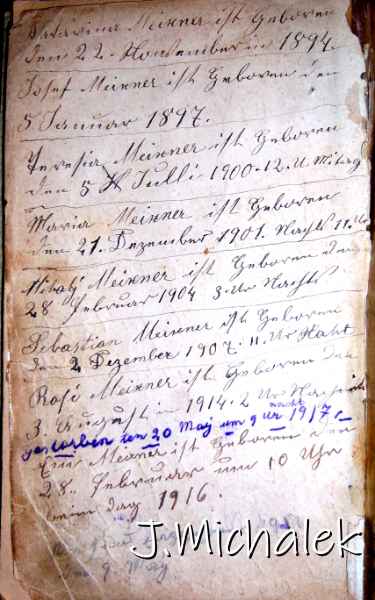 Katarina Meixner ist Geboren
den 22. November in 1894.
Josef Meixner ist Geboren den
5 Januar 1897.
Teresia Meixner ist Geboren
den 5 Julli 1900. 12. U Mitag
Maria Meixner ist Geboren
den 21. Dezember 1901. Nachts 11. Ur
Meixner ist Geboren den
28 Februar 1904 3. Ur Nachts.
Sebastian Meixner ist Geboren
den 2 Dezember 1907. 11. Ur Naht
Rosi Meixner ist Geboren den
3. August in 1914. 2 Ur
gestorben am 20 Maÿ um 9 ur nacht 1917.
Meixner ist Geboren den
28. Februar um 10 Uhr
beim dag 1916.
9. May
J.Michalek